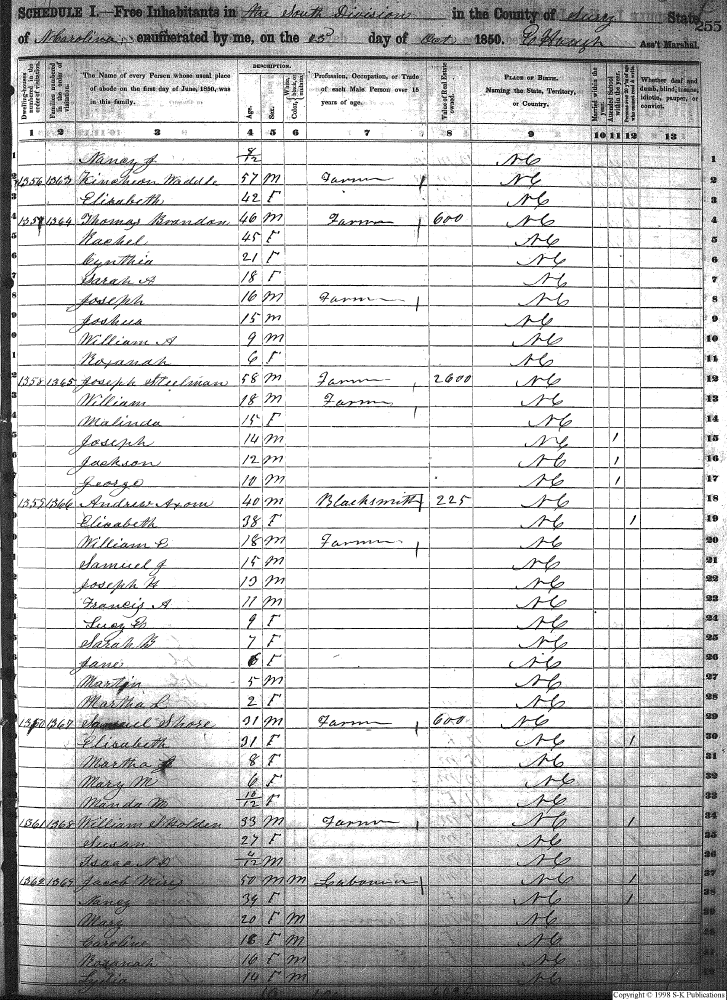 SCHEDULE I.—Free Inhabitants in the South Division in the County of Surry State
255
of N Carolina enumerated by me, on the day of Oct 1850. Ass't Marshal.
Dwelling-houses numbered in the order of visitation.
Families numbered in the order of visitation.
The Name of every Person whose usual place of abode on the first day of June, 1850, was in this family.
DESCRIPTION.
Age.
Sex.
Color, White, black, or mulatto.
Profession, Occupation, or Trade of each Male Person over 15 years of age.
Value of Real Estate owned.
PLACE OF BIRTH. Naming the State, Territory, or Country.
Married within the year.
Attended School within the year.
Persons over 20 y'rs of age who cannot read & write.
Whether deaf and dumb, blind, insane, idiotic, pauper, or convict.
1 2 3 4 5 6 7 8 9 10 11 12 13
1 Nancy J /12 NC 1
2 1356 1363 Kincheon Waddle 57 M Farmer NC 2
3 Elizabeth 42 F NC 3
4 1357 1364 Thomas Brandon 46 M Farmer 600 NC 4
5 Rachel 45 F NC 5
6 Cynthia 21 F NC 6
7 Sarah A 18 F NC 7
8 Joseph 16 M Farmer NC 8
9 Joshua 15 M NC 9
10 William A 9 M NC 10
11 Roxanah 6 F NC 11
12 1358 1365 Joseph Steelman 58 M Farmer 2600 NC 12
13 William 18 M Farmer NC 13
14 Malinda 15 F NC 14
15 Joseph 14 M NC 1 15
16 Jackson 12 M NC 1 16
17 George 10 M NC 1 17
18 1359 1366 Andrew Axom 40 M Blacksmith 225 NC 18
19 Elisabeth 38 F NC 1 19
20 William C 18 M Farmer NC 20
21 Samuel J 15 M NC 21
22 Joseph H 13 M NC 22
23 Francis A 11 M NC 23
24 Lucy 9 F NC 24
25 Sarah B 7 F NC 25
26 Jane 6 F NC 26
27 Martin 5 M NC 27
28 Martha L 2 F NC 28
29 1360 1367 Samuel Shore 31 M Farmer 600 NC 29
30 Elisabeth 31 F NC 1 30
31 Martha 8 F NC 31
32 Mary M 6 F NC 32
33 Manda M 10/12 F NC 33
34 1361 1368 William Holden 33 M Farmer NC 1 34
35 Susan 27 F NC 35
36 Isaac N D /12 M NC 36
37 1362 1369 Jacob 50 M M Labourer NC 1 37
38 Nancy 39 F NC 1
39 Mary 20 F M NC
40 Caroline 18 F M NC
41 Roxanah 16 F M NC
42 Lydia 14 F M NC
Copyright © 1998 S-K Publications